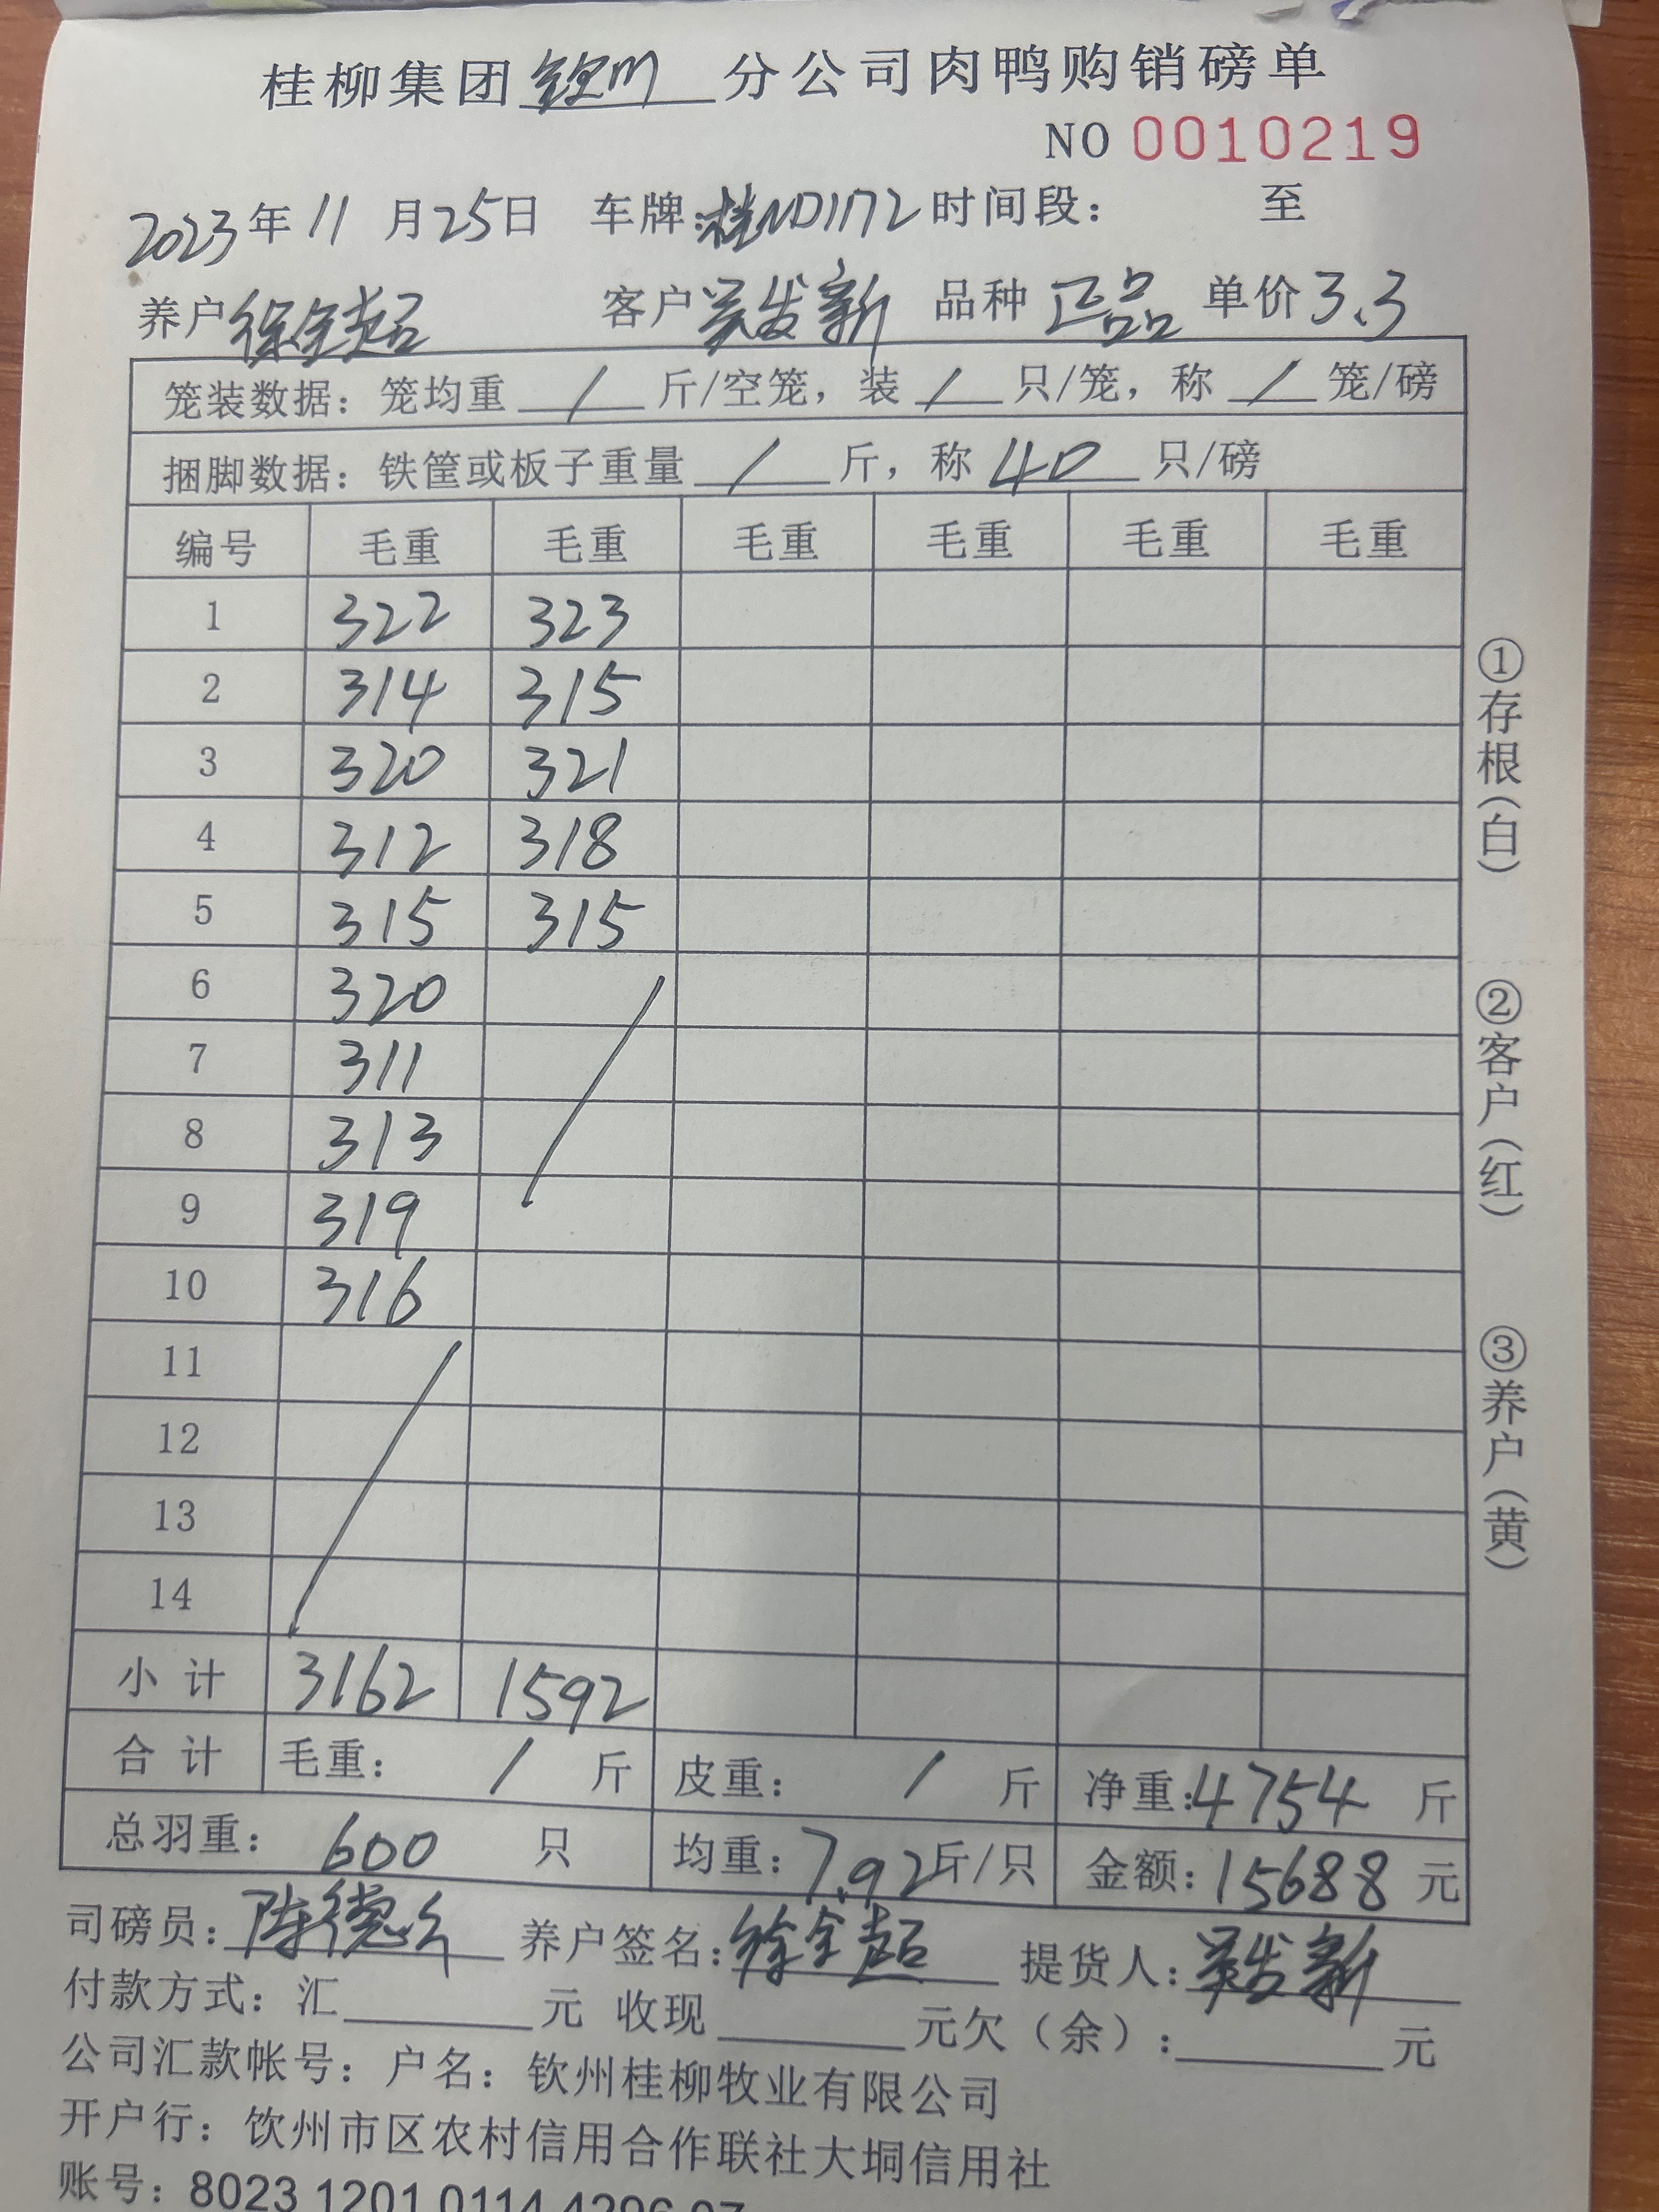 桂柳集团钦州分公司肉鸭购销磅单
NO 0010219
2023年11月25日 车牌:桂ND1172 时间段: 至
养户徐全超 客户吴发新 品种 正品 单价3.3
笼装数据：笼均重 / 斤/空笼，装 / 只/笼，称 / 笼/磅
捆脚数据：铁筐或板子重量 / 斤，称 40 只/磅
编号 毛重 毛重 毛重 毛重 毛重 毛重
1 322 323
2 314 315
3 320 321
4 312 318
5 315 315
6 320
7 311
8 313
9 319
10 316
11
12
13
14
小计 3162 1592
合计 毛重： / 斤 皮重： / 斤 净重:4754 斤
总羽重： 600 只 均重：7.92斤/只 金额：15688 元
司磅员：陈德 养户签名:徐全超 提货人:吴发新
付款方式：汇 元 收现 元欠（余）： 元
公司汇款帐号：户名：钦州桂柳牧业有限公司
开户行：钦州市区农村信用合作联社大垌信用社
账号：8023 1201 0114 4296 07
①存根(白)
②客户(红)
③养户(黄)